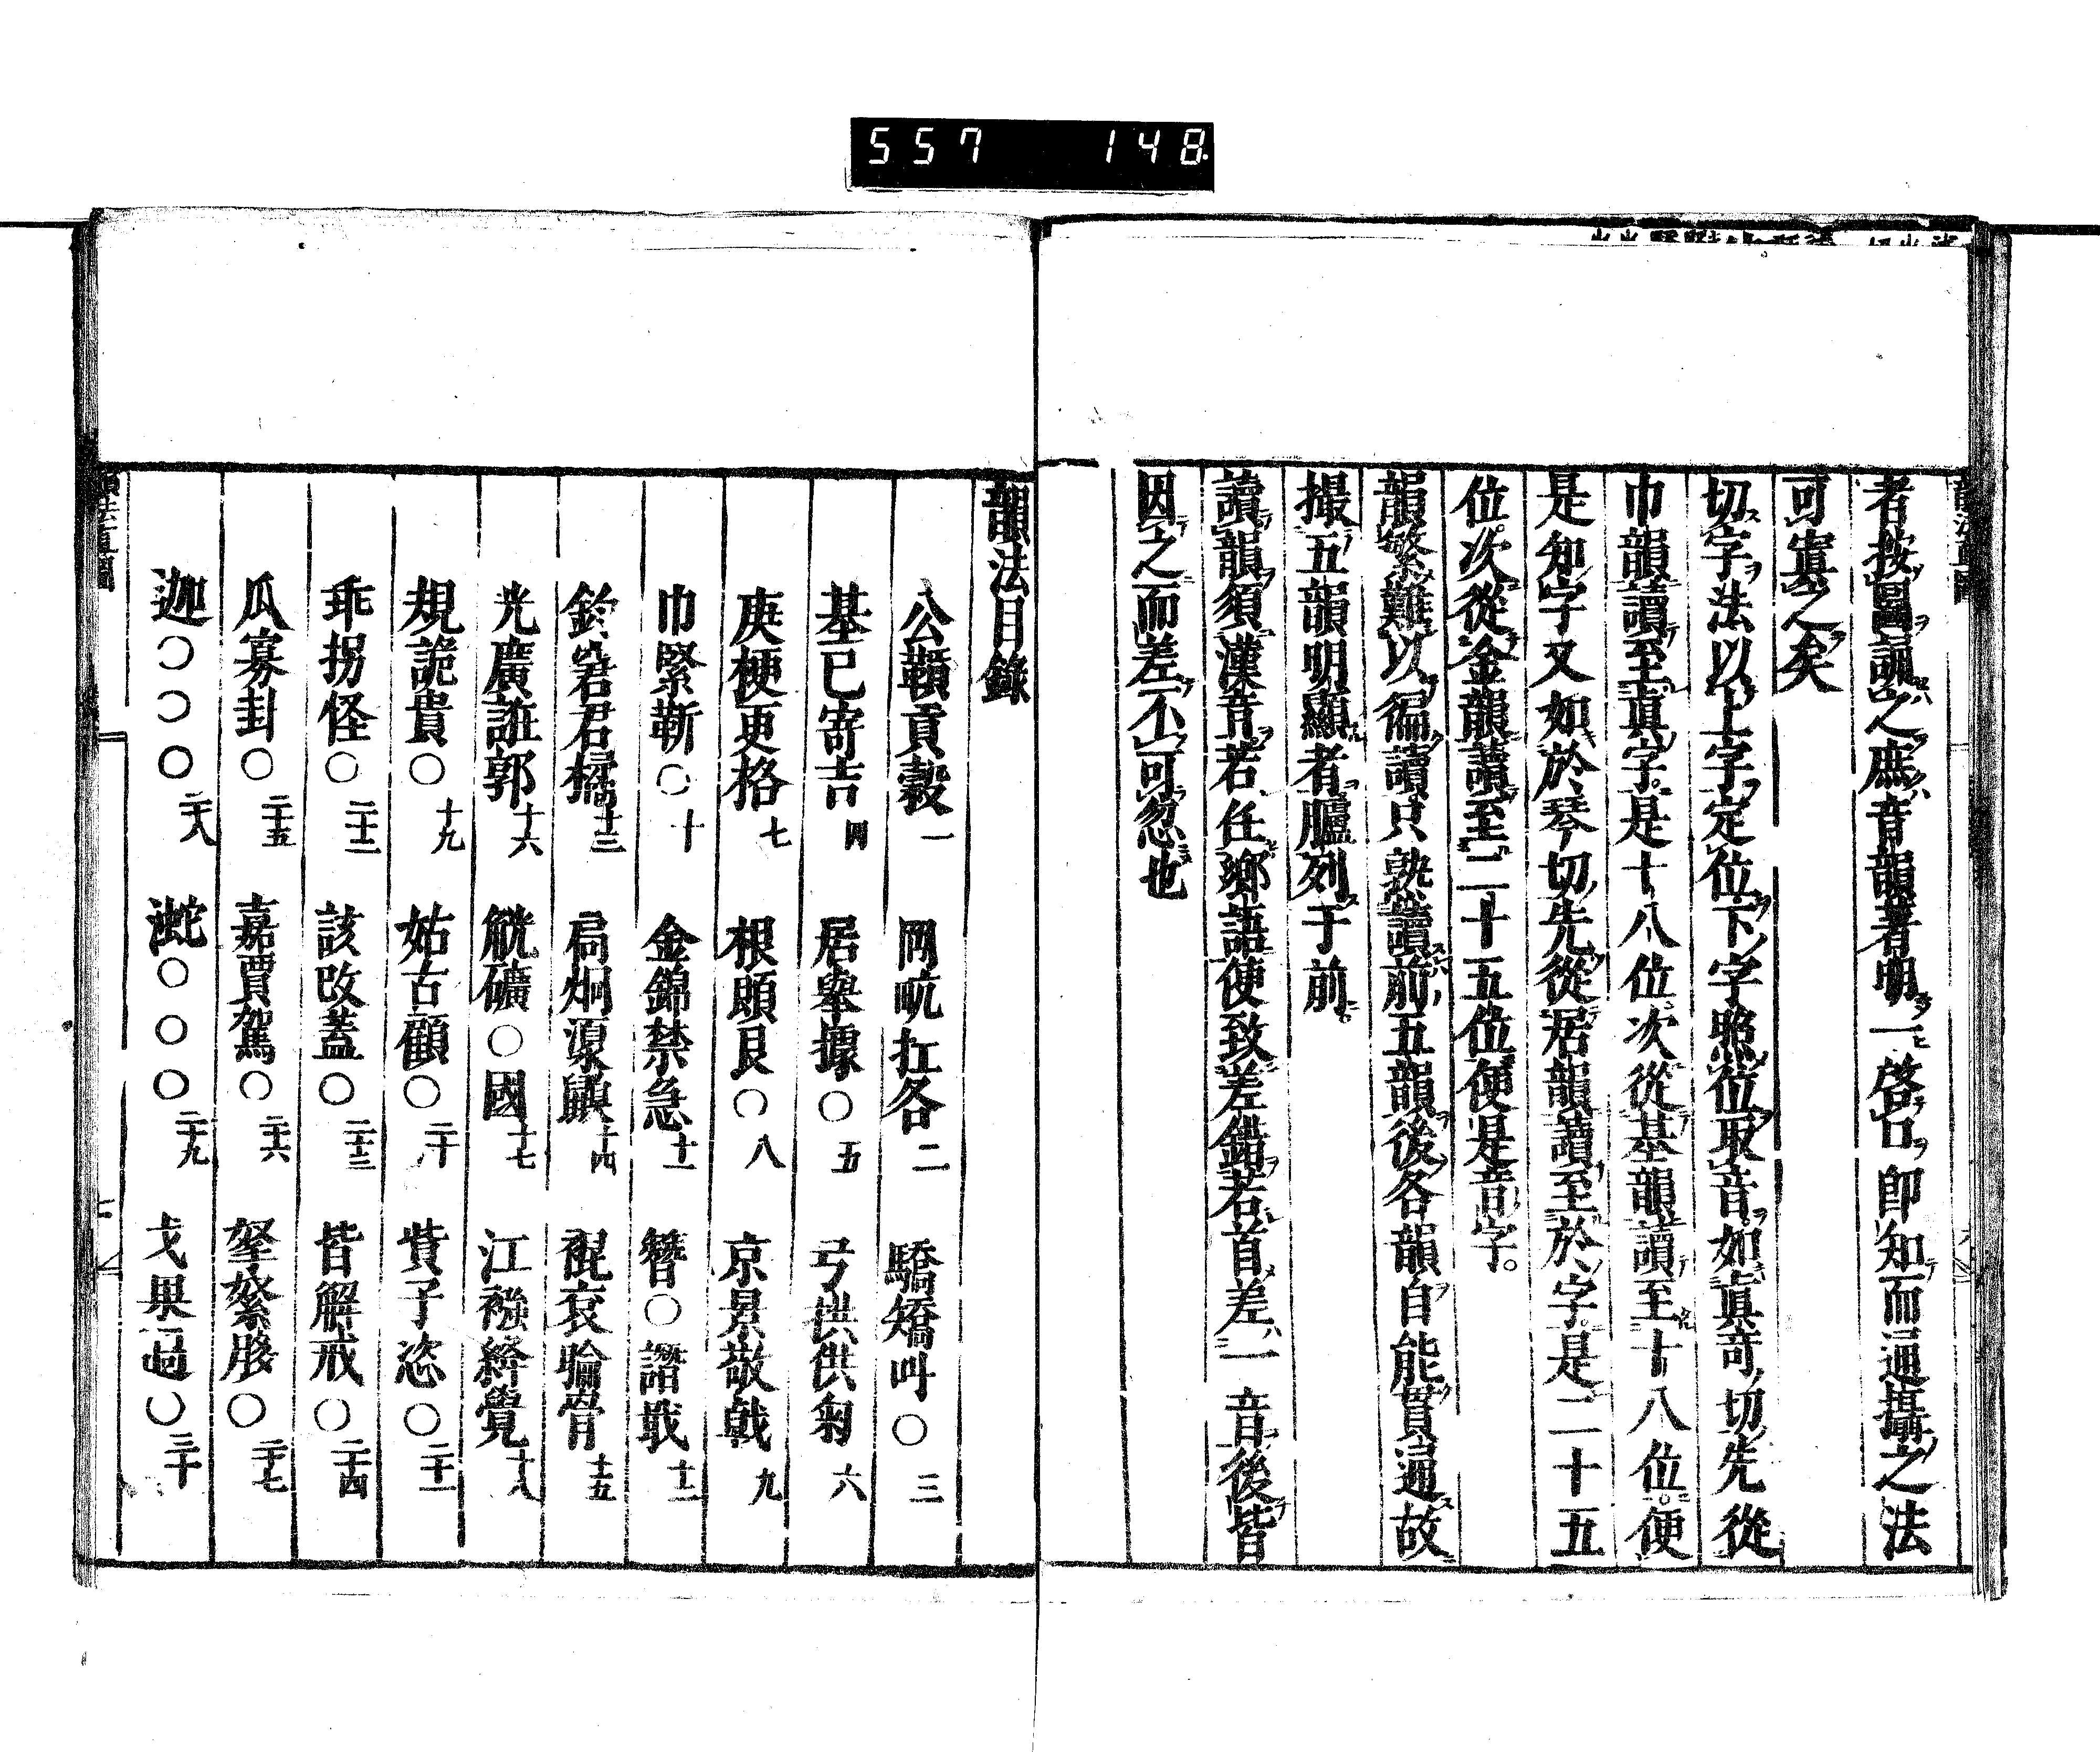 557 148
者按圖誦之庶音韻著明一啓口卽知而通攝之法
可寘之矣
切字法以上字定位下字照位取音如眞奇切先從
巾韻讀至眞字是十八位次從基韻讀至十八位便
是知字又如於琴切先從居韻讀至於字是二十五
位次從金韻讀至二十五位便是音字
韻繁難以徧讀只熟讀前五韻後各韻自能貫通故
撮五韻明顯者臚列于前
讀韻須漢音若任鄉語便致差錯若首差一音後皆
因之而差不可忽也
韻法目錄
公贑貢穀一 岡㽘扛各二 驕矯叫○三
基已寄吉四 居舉據○五 弓拱供匊六
庚梗更格七 根頤艮○八 京景敬戟九
巾緊靳○十 金錦禁急十一 簪○譖戢十二
鈞窘君橘十三 扃炯 十四 裩袞睔骨十五
光廣誑郭十六 觥礦○國十七 江襁絳覺十八
規詭貴○十九 姑古顧○二十 貲子恣○二十一
乖拐怪○二十二 該改蓋○二十三 皆解戒○二十四
瓜寡卦○二十五 嘉賈駕○二十六 拏絮䏧○二十七
迦○○○二十八 ○○○二十九 戈果過○三十
韻法直圖